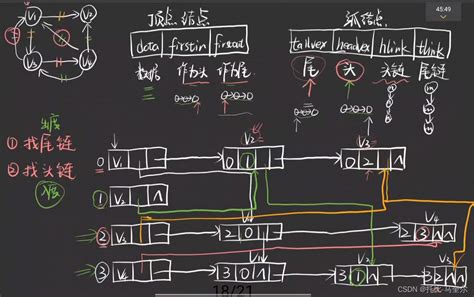 45:49
顶点结点
弧结点
data firstin firstout
tailvex headvex hlink tlink
数据 作为头 作为尾
尾 头 头链 尾链
V₁ V₂
V₃ V₄
出度
① 找尾链
② 找头链
入度
V₂ V₃
0 V₁ 0 1 0 2 ∧
① V₂
V₁ V₄
② V₃ 2 0 2 3 ∧
V₁ V₂
③ V₄ 3 0 ∧ 3 1 ∧ 3 2 ∧
18/21